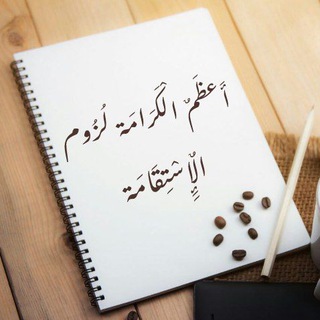 أَعظَمُ الكَرَامَة لُزُوم
الإِسْتِقَامَة